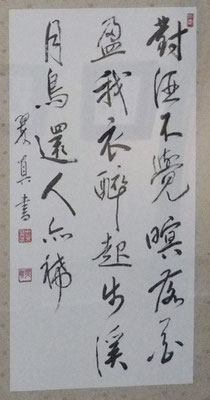 對酒不覺暝落花
盈我衣醉起步溪
月鳥還人亦稀
真書